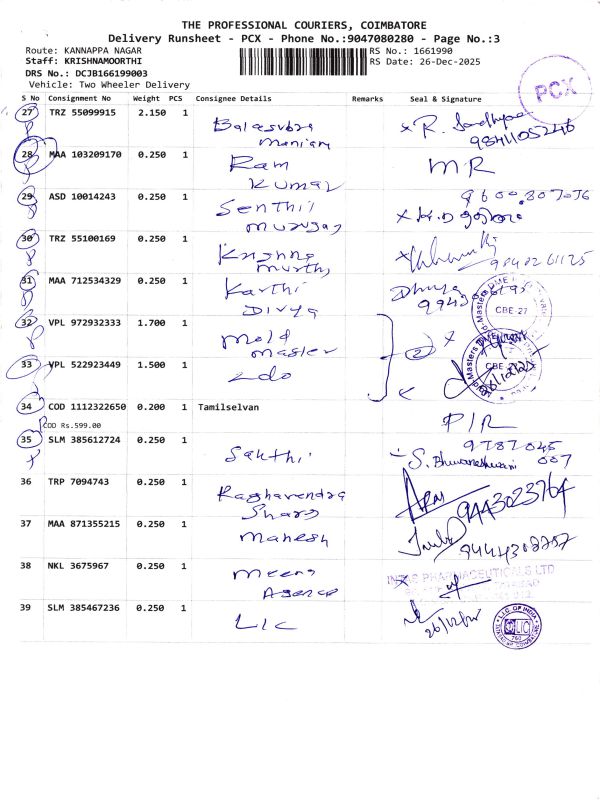 THE PROFESSIONAL COURIERS, COIMBATORE
Delivery Runsheet - PCX - Phone No.:9047080280 - Page No.:3
Route: KANNAPPA NAGAR
RS No.: 1661990
Staff: KRISHNAMOORTHI
RS Date: 26-Dec-2025
DRS No.: DCJB166199003
Vehicle: Two Wheeler Delivery
PCX
S No Consignment No Weight PCS Consignee Details Remarks Seal & Signature
27 TRZ 55099915 2.150 1 Balasubra
Maniam
28 MAA 103209170 0.250 1 Ram MR
Kumar
29 ASD 10014243 0.250 1 Senthil
Murugas
30 TRZ 55100169 0.250 1 Krishna
Murthy 9840261125
31 MAA 712534329 0.250 1 Karthi Dhivya
Divya
CBE-27
32 VPL 972932333 1.700 1 Mold
Master
2
33 VPL 522923449 1.500 1 Ldo
34 COD 1112322650 0.200 1 Tamilselvan P/R
COD Rs.599.00
35 SLM 385612724 0.250 1 Sakthi 9787045
007
S. Bhuvaneshwari
36 TRP 7094743 0.250 1 Raghavendra
Sharg 9443023764
37 MAA 871355215 0.250 1 Mahesh
9444308757
38 NKL 3675967 0.250 1 Meera
Agence
INTAS PHARMACEUTICALS LTD
39 SLM 385467236 0.250 1 LIC
26/12/25
LIC OF INDIA
LIC